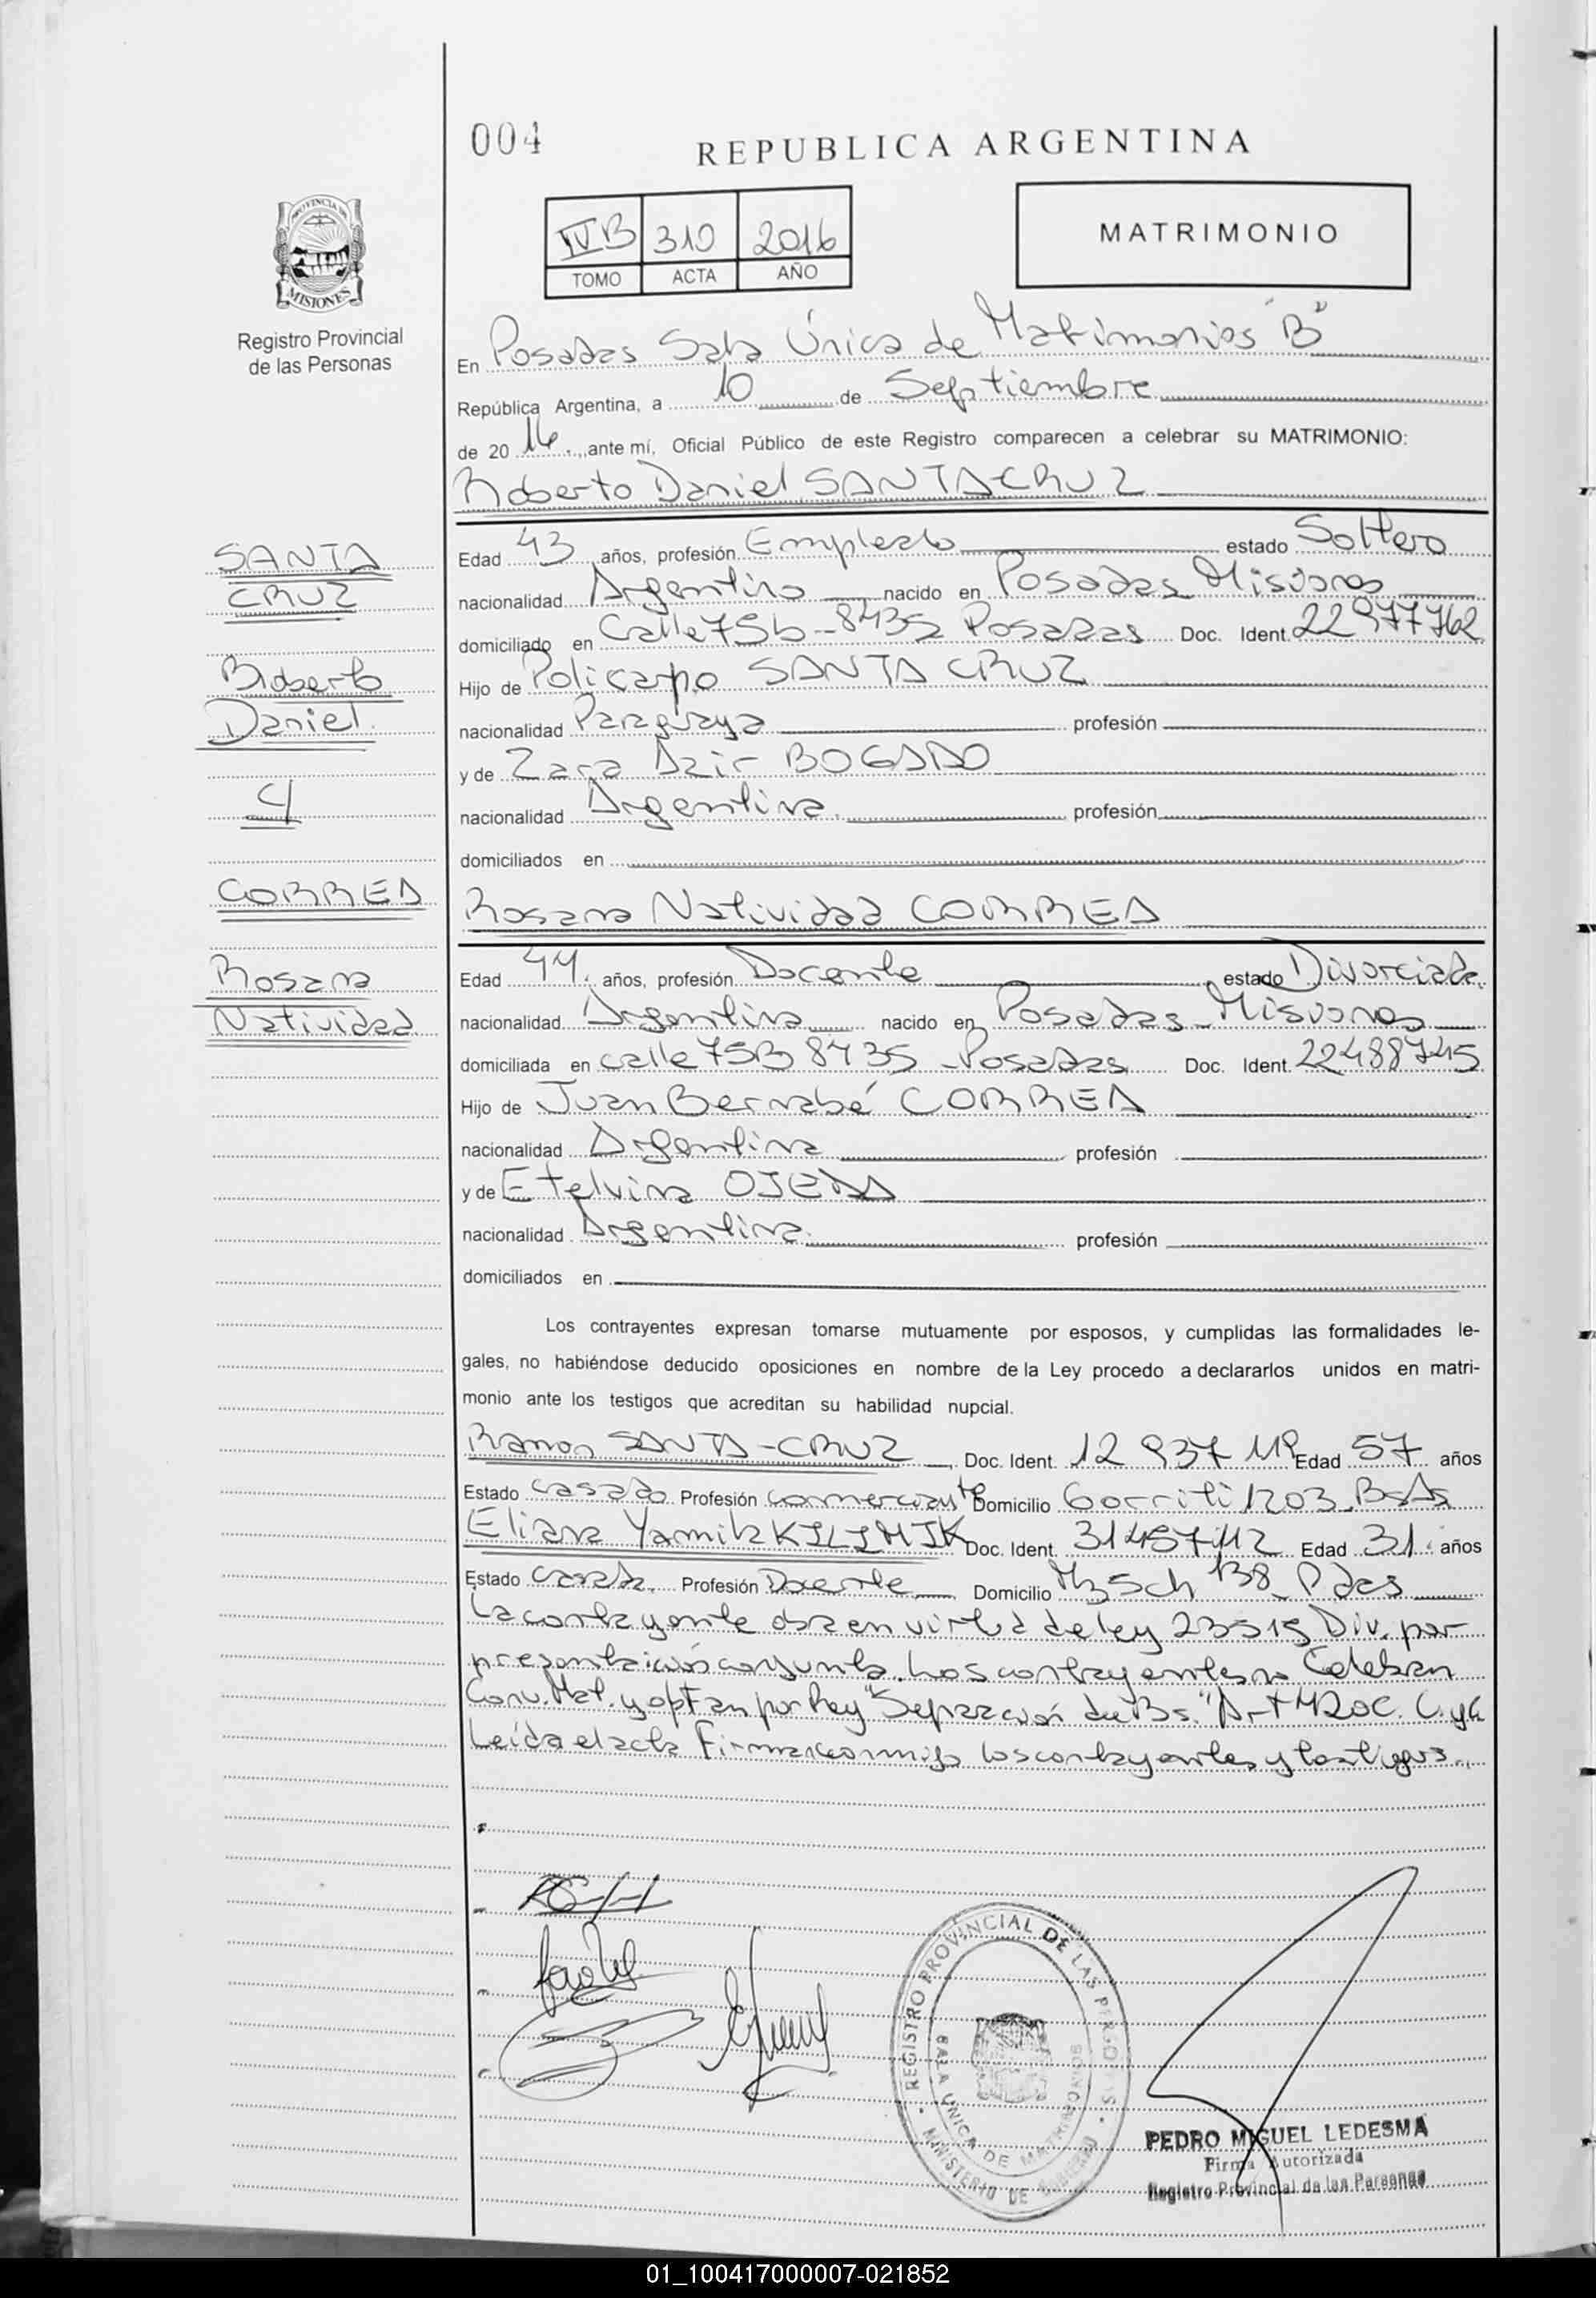 004
REPUBLICA ARGENTINA
IVB 310 2016
TOMO ACTA AÑO
MATRIMONIO
PROVINCIA DE
MISIONES
Registro Provincial
de las Personas
En Posadas Sala Única de Matrimonios "B"
República Argentina, a 10 de Septiembre
de 2016, ante mí, Oficial Público de este Registro comparecen a celebrar su MATRIMONIO:
Roberto Daniel SANTA CRUZ
SANTA
CRUZ
Roberto
Daniel
C/
CORREA
Rosana
Natividad
Edad 43 años, profesión Empleado estado Soltero
nacionalidad Argentino nacido en Posadas Misiones
domiciliado en Calle 75b-8435 Posadas Doc. Ident. 22977762
Hijo de Policarpo SANTA CRUZ
nacionalidad Paraguaya profesión
y de Zara Azir BOGADO
nacionalidad Argentina profesión
domiciliados en
Rosana Natividad CORREA
Edad 44 años, profesión Docente estado Divorciada
nacionalidad Argentina nacido en Posadas-Misiones
domiciliada en calle 75B 8435 -Posadas Doc. Ident. 22488745
Hijo de Juan Bernabé CORREA
nacionalidad Argentina profesión
y de Etelvina OJEDA
nacionalidad Argentina profesión
domiciliados en
Los contrayentes expresan tomarse mutuamente por esposos, y cumplidas las formalidades le-
gales, no habiéndose deducido oposiciones en nombre de la Ley procedo a declararlos unidos en matri-
monio ante los testigos que acreditan su habilidad nupcial.
Ramon SANTA-CRUZ Doc. Ident. 12 937 Edad 57 años
Estado casado Profesión comerciante Domicilio Gorriti 1203 BsAs
Eliana Yamila Doc. Ident. 31457112 Edad 31 años
Estado casada Profesión Docente Domicilio Mz5ch 138 Pdas
La contrayente obra en virtud de ley 23515 Div. por
presentación conjunta. Los contrayentes no Celebran
Conv. Mat. y optan por Reg "Separación de Bs." Art 420C. C.yC
Leída el acta Firman conmigo los contrayentes y testigos.
REGISTRO PROVINCIAL DE LAS PERSONAS
SALA UNICA DE MATRIMONIOS
MINISTERIO DE GOBIERNO
PEDRO MIGUEL LEDESMA
Firma Autorizada
Registro Provincial de las Personas
01_100417000007-021852